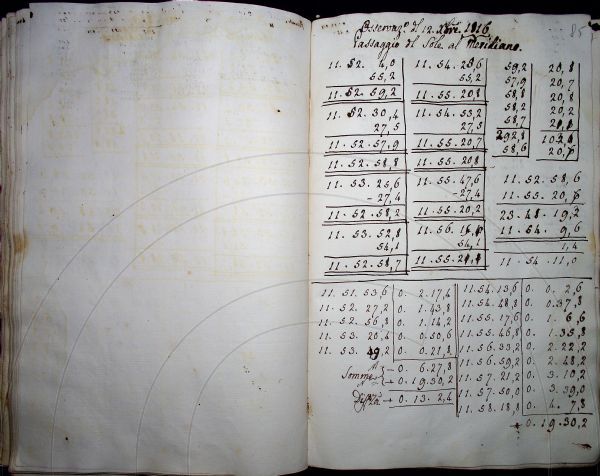 Osservaz.e del 12. Xbre. 1816.
Passaggio del Sole al Meridiano.
11. 52. 4,0
55,2
11. 52. 59,2
11. 52. 30,4
27,5
11. 52. 57,9
11. 52. 58,8
11. 53. 25,6
- 27,4
11. 52. 58,2
11. 53. 52,8
54,1
11. 52. 58,7
11. 54. 25,6
55,2
11. 55. 20,8
11. 54. 53,2
27,5
11. 55. 20,7
11. 55. 20,8
11. 55. 47,6
- 27,4
11. 55. 20,2
11. 56. 
54,1
11. 55. 
59,2
57,9
58,8
58,2
58,7
292,8
58,6
20,8
20,7
20,8
20,2
11. 52. 58,6
11. 55. 
23. 48. 19,2
11. 54. 9,6
1,4
11. 54. 11,0
11. 51. 53,6 0. 2. 17,4
11. 52. 27,2 0. 1. 43,8
11. 52. 56,8 0. 1. 14,2
11. 53. 20,4 0. 0. 50,6
11. 53. 49,2 0. 0. 21,8
Somme - 0. 6. 27,8
+ 0. 19. 30,2
+ 0. 13. 2,4
11. 54. 13,6 0. 0. 2,6
11. 54. 48,8 0. 0. 37,8
11. 55. 17,6 0. 1. 6,6
11. 55. 46,8 0. 1. 35,8
11. 56. 33,2 0. 2. 22,2
11. 56. 59,2 0. 2. 48,2
11. 57. 21,2 0. 3. 10,2
11. 57. 50,0 0. 3. 39,0
11. 58. 18,8 0. 4. 7,8
+ 0. 19. 30,2